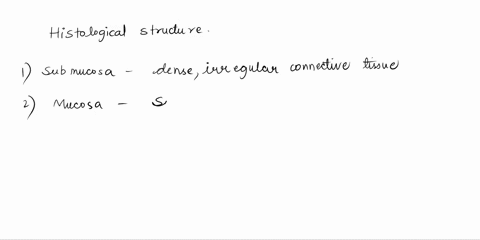 Histological structure.
1) Submucosa - dense, irregular connective tissue
2) Mucosa - S